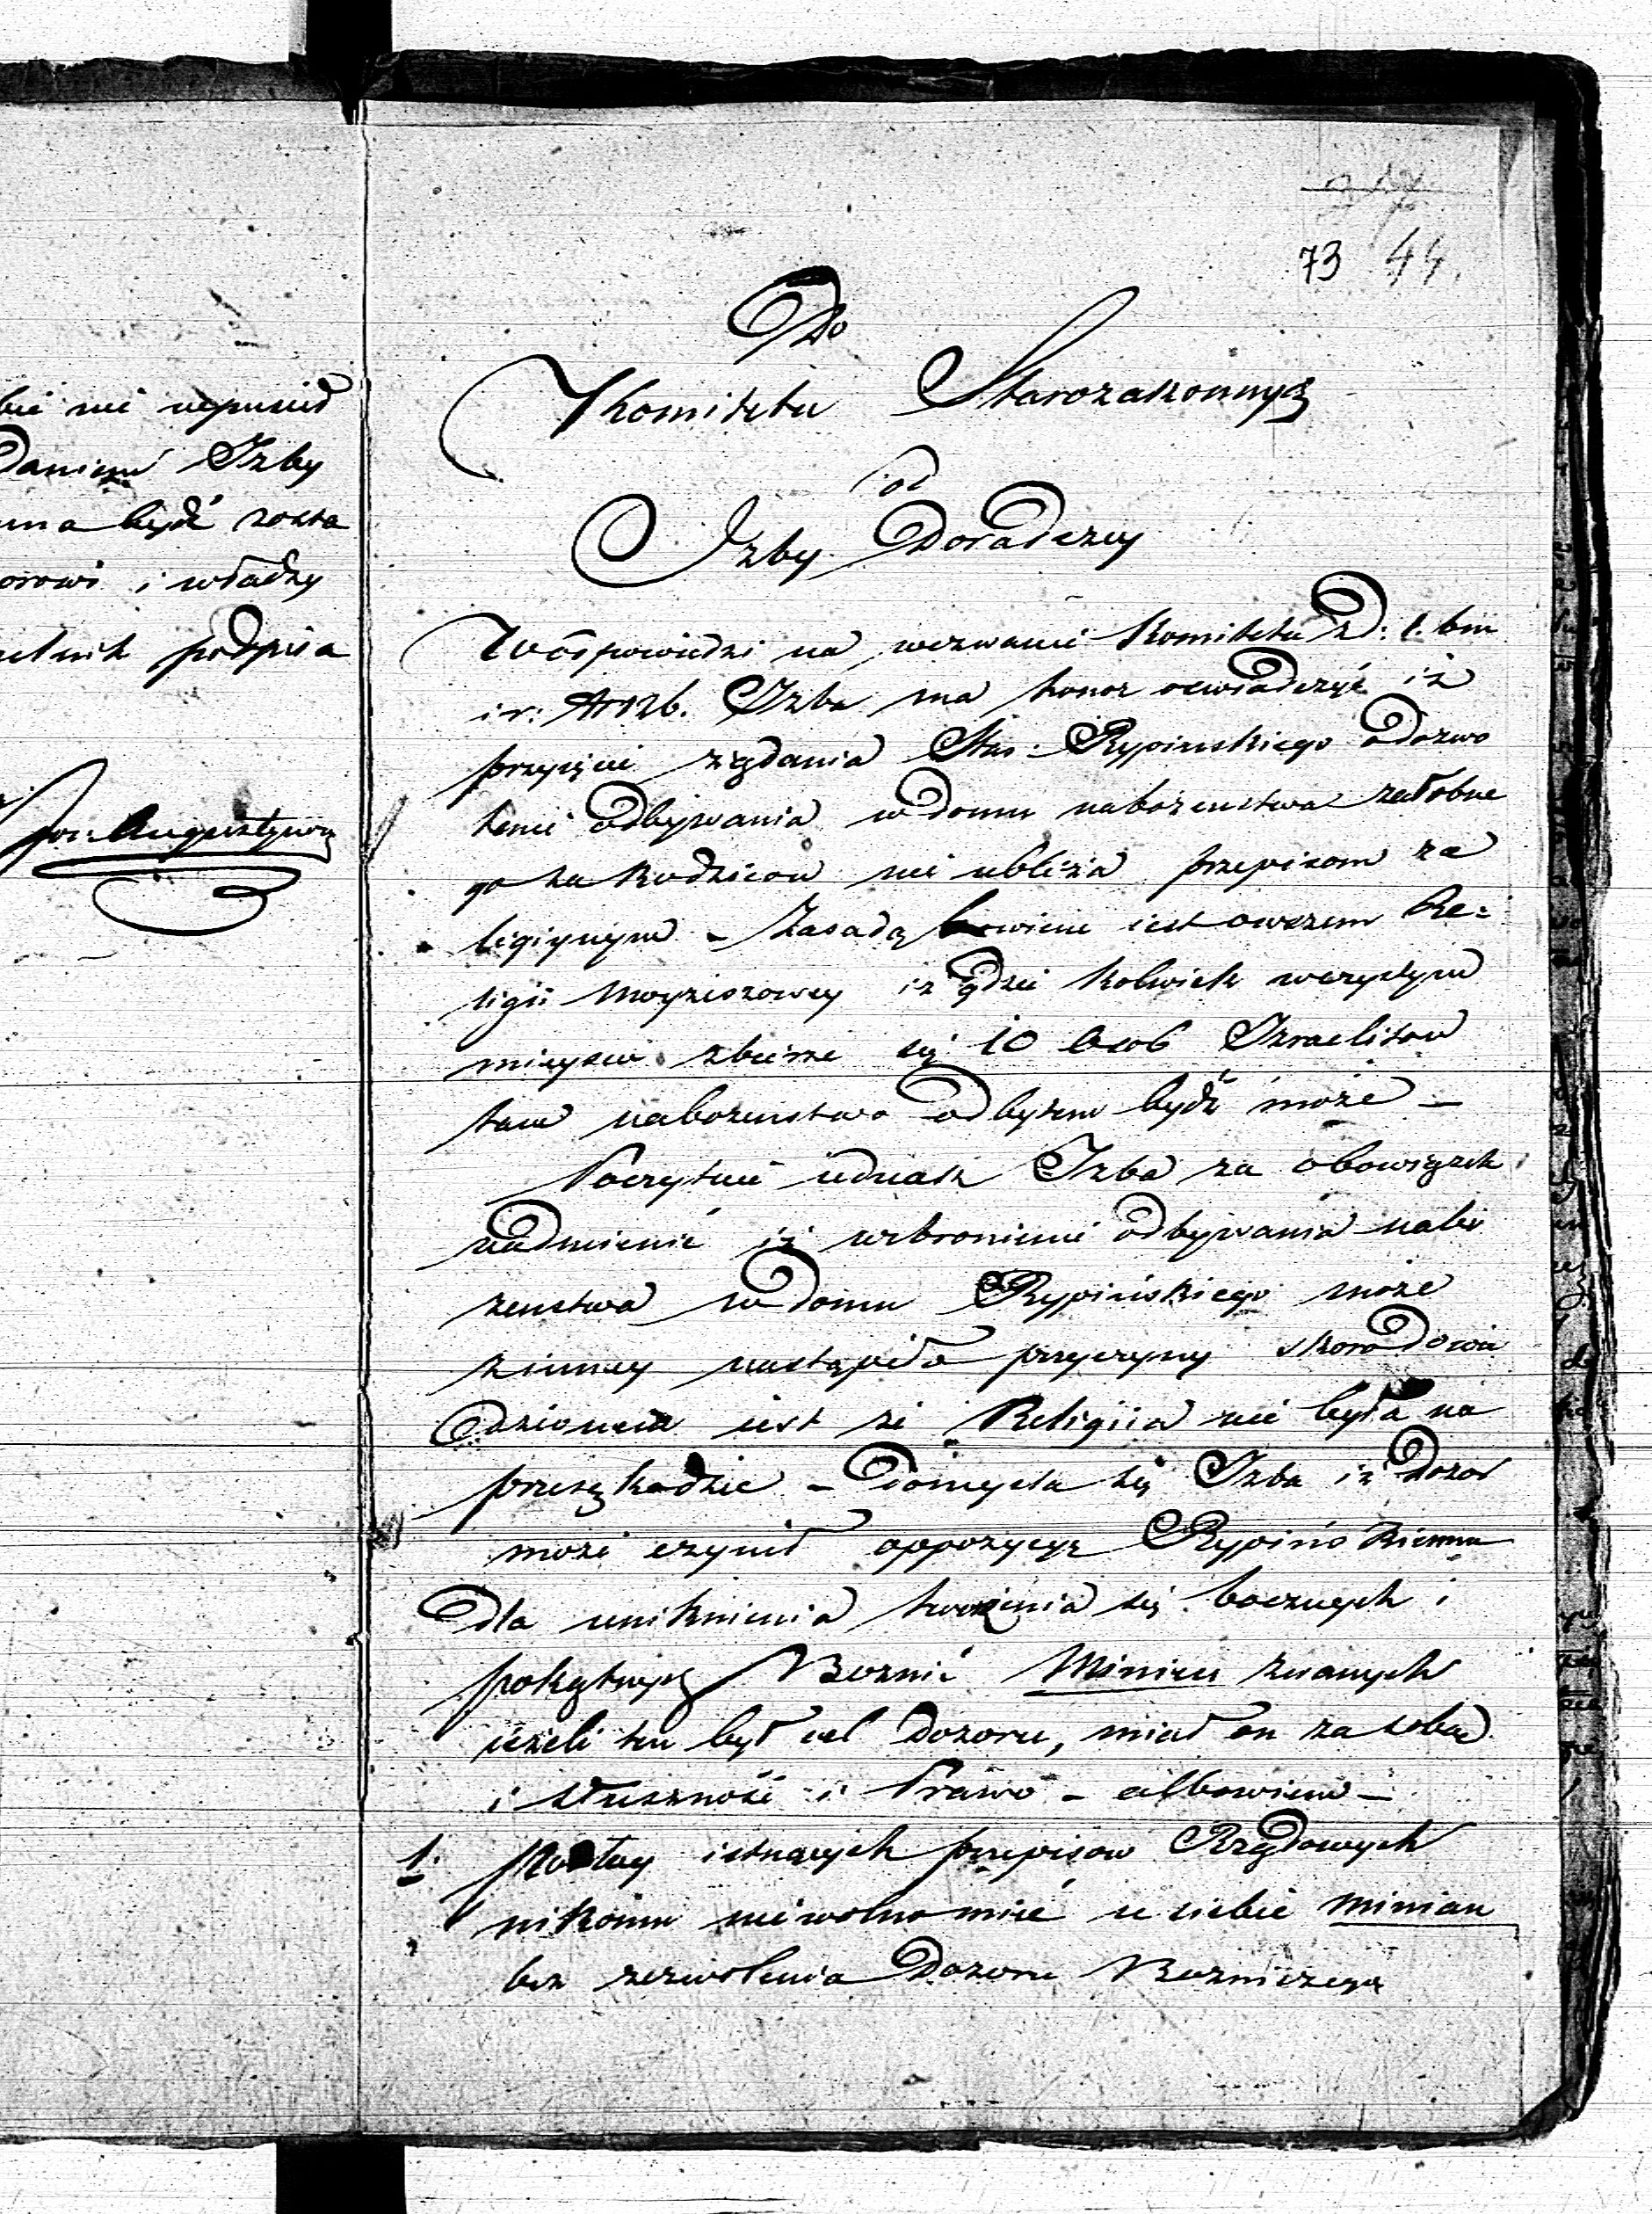 bie nie wpuścić
daniem Izby
ma bydź zosta
orowi i władzy
podpisa
Augustynow
73 44.
Do
Komitetu Starozakonnych
od
Izby Doradczey
W odpowiedzi na wezwanie Komitetu z d: 1. bm
i r: N 126. Izba ma honor oświadczyć iż
przyięcie żądania Star: Rypinskiego o dozwo
lenie odbywania w domu nabozenstwa załobne
go za Rodzicow nie ubliża przepisom re
ligiynym – Zasadą bowiem iest owszem Re=
ligii Moyżeszowey iż gdzie kolwiek w czystym
mieyscu zbierze się 10 Osob Izraelitow
tam nabozenstwo odbytem bydź może –
Poczytuie iednak Izba za obowiązek
nadmienić iż wzbronienie odbywania nabo
zenstwa w domu Rypińskiego może
z inney nastąpiło przyczyny skoro dowie
dzionem iest że Religiia nie była na
przeszkodzie – Domysla się Izba iż Dozor
może czynił oppozycyą Rypińskiemu
dla uniknienia tworzenia się bocznych i
pokątnych Boznic Minien zwanych
ieżeli ten był cel Dozoru, miał on za sobą
i słuszność i Prawo – albowiem –
1. Podług istnących przepisow Rządowych
nikomu niewolno mieć u siebie minian
bez zezwolenia Dozoru Bozniczego